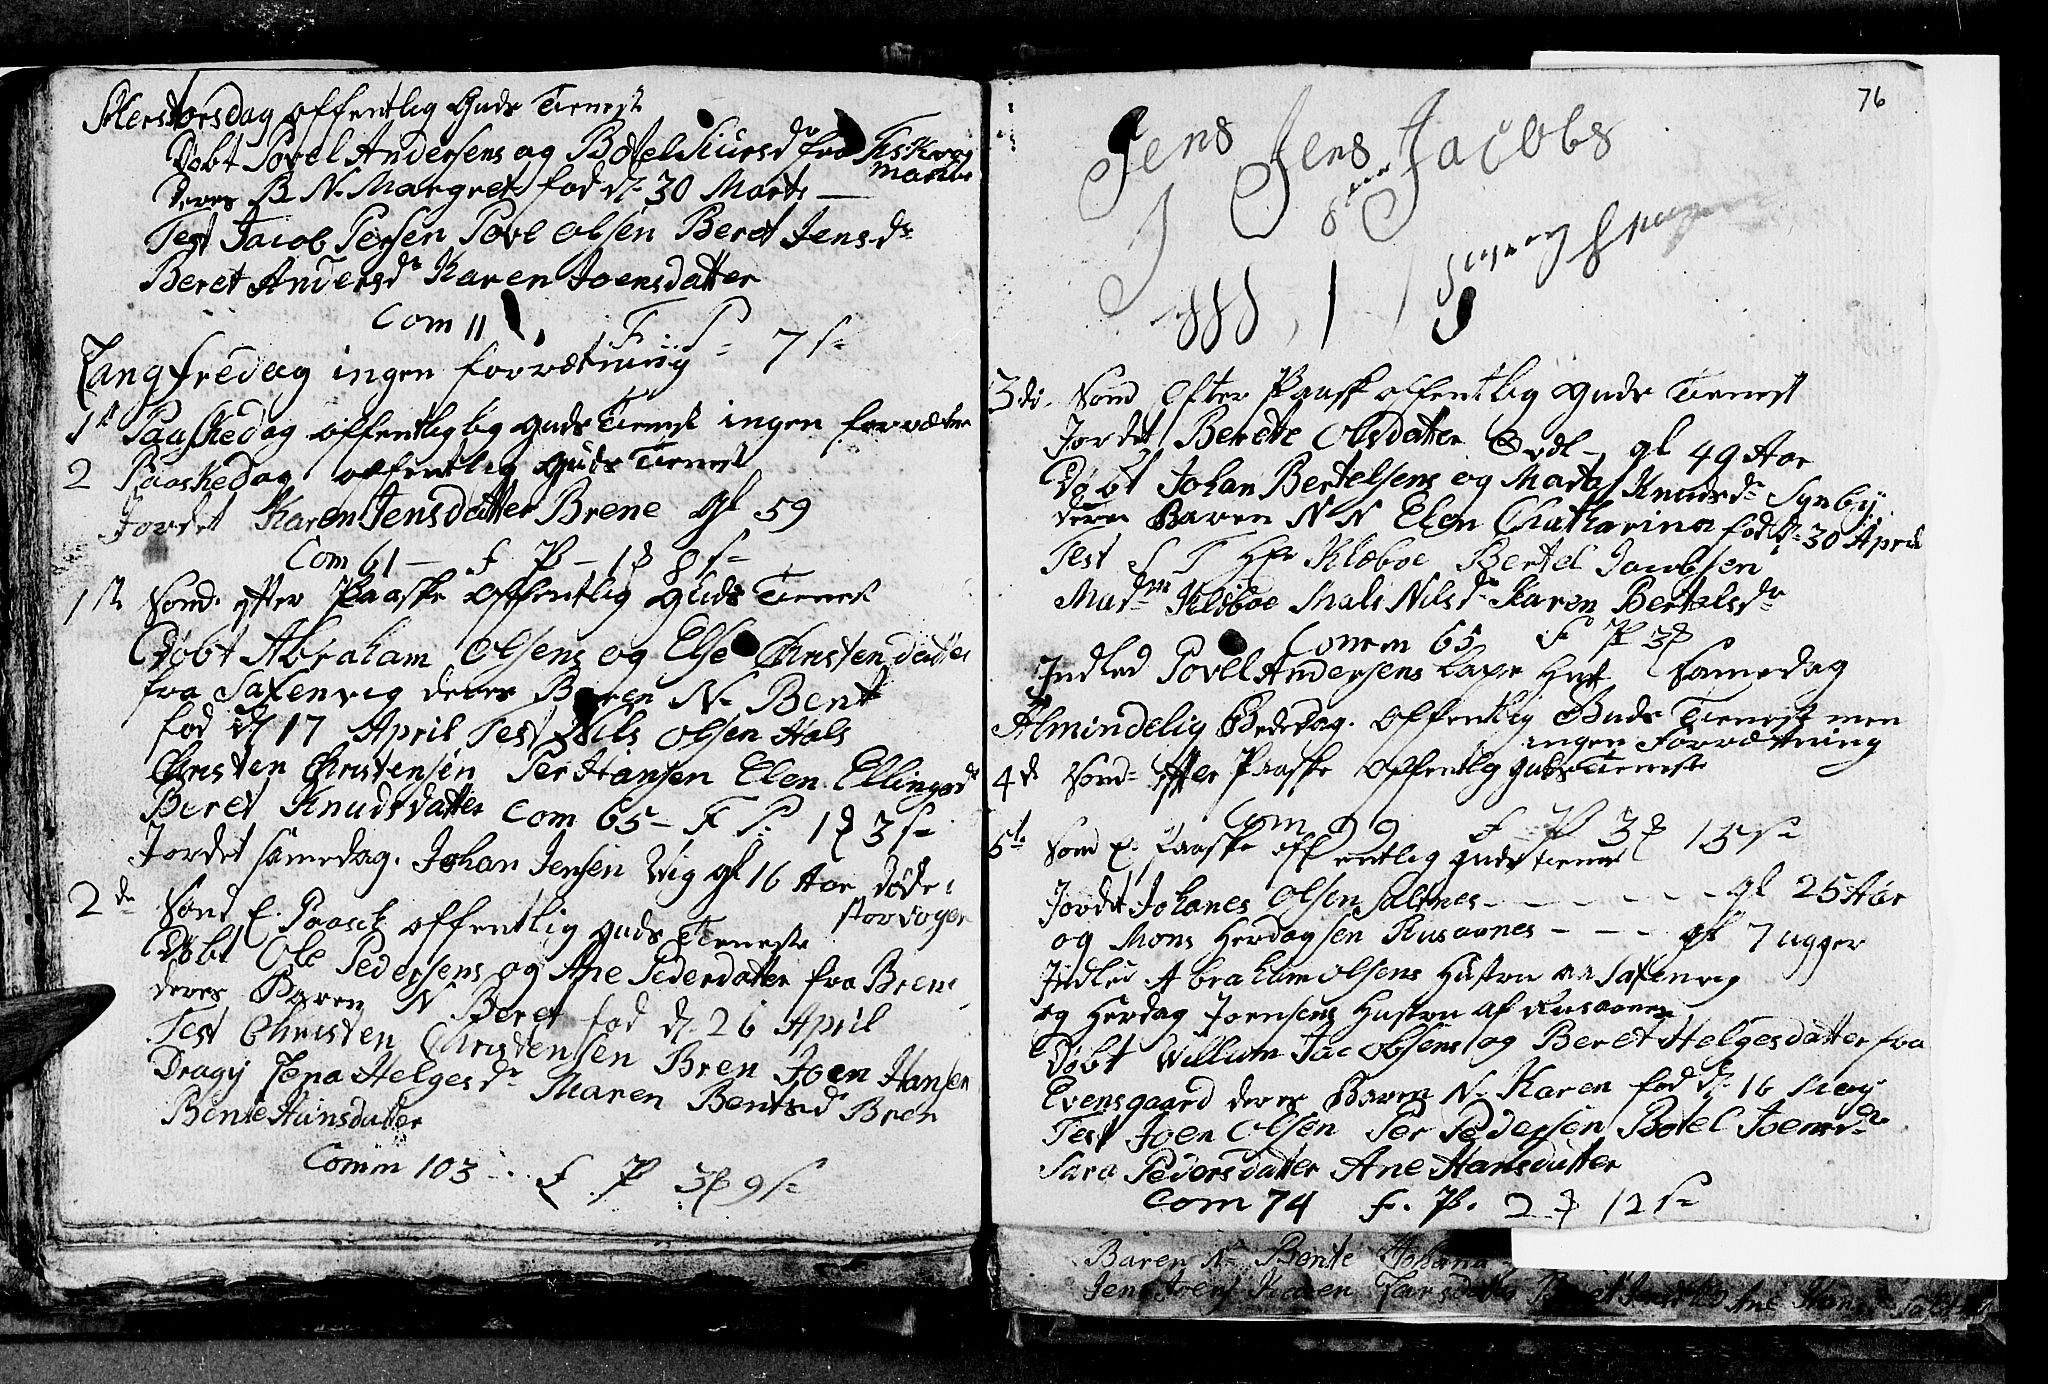 Skerstorsdag offentlig Guds Tienest
Døbt Povel Andersens og Botel Siursdr fra Fiskvog
Marke
Deres B N. Margret fød d. 30 Marts
Test Jacob Persen Povel Olsen Beret Jensdr
Beret Andersdr Karen Joensdatter
Com 11 F P 7 s
Langfredag ingen forrætning
1st Paaskedag offentliglig Guds Tienest ingen forrætn
2 Paaskedag offentlig Guds Tienest
Jordet Karen Jensdatter Brene gl 59
Com 61 – F P – 1 8 s
1st Sønd. efter Paaske offentlig Guds Tienest
Døbt Abraham Olsens og Else Christendatter
fra Saxenvig deres Baren N. Bent
fød d 17 April Test Nils Olsen Hals
Christen Christensen Per Hansen Elen Ellingsd
Beret Knudsdatter Com 65 – F P. 1 3 s
Jordet samedag. Johan Jensen Vig gl 16 Aar døde i
Storvogen
2de Sønd E. Paask offentlig Guds Tieneste
Døbt Ole Pedersens og Ane Pedersdatter fra Bren
deres Baren N Beret fød d. 26 April
Test Christen Christensen Bren Joen Hansen
Dragy Lena Helgesdr Maren Bentsd Bren
Bente Hansdatter
Comm 103 F P 3 9 s
76
Jens Jens Jacobs
3die Sønd Efter Paask offentlig Guds Tienest
Jordet Berete Olsdatter gl 49 Aar
Døbt Johan Bertelsens og Marta Knudsdr Synbÿ
deres Baren N N Elen Chatharina fød d. 30 April
Test S T Hr Klæboe Bertel Jacobsen
Madme Klæboe Mals Nilsdr Karen Bertelsdr
Comm 65 F P 3
Indled Povel Andersens Lape Hust samedag
Almindelig Bededag. offentlig Guds Tienest men
ingen Forrætning
4de Sønd. efter Paaske offentlig guds Tieneste
Com 99 F P 3 13 s
5te Sønd E. Paaske offentlig guds tienest
Jordet Johanes Olsen Saltnes – – – – gl 25 Aar
og Mons Herdagsen Rusaanes – – – gl 7 ugger
Indled Abraham Olsens Hustru Saxenvig
og Herdag Joensens Hustru af Rusaanes
Døbt Willum Jacobsens og Beret Helgesdatter fra
Evensgaard deres Baren N. Karen fød d. 16 May
Test Joen Olsen Per Pedersen Botel Joensdr
Sara Pedersdatter Ane Hansdatter
Com 74 F. P. 2 12 s
Baren N Bente Johana
Jens Joens Karen Larsdatter Ane